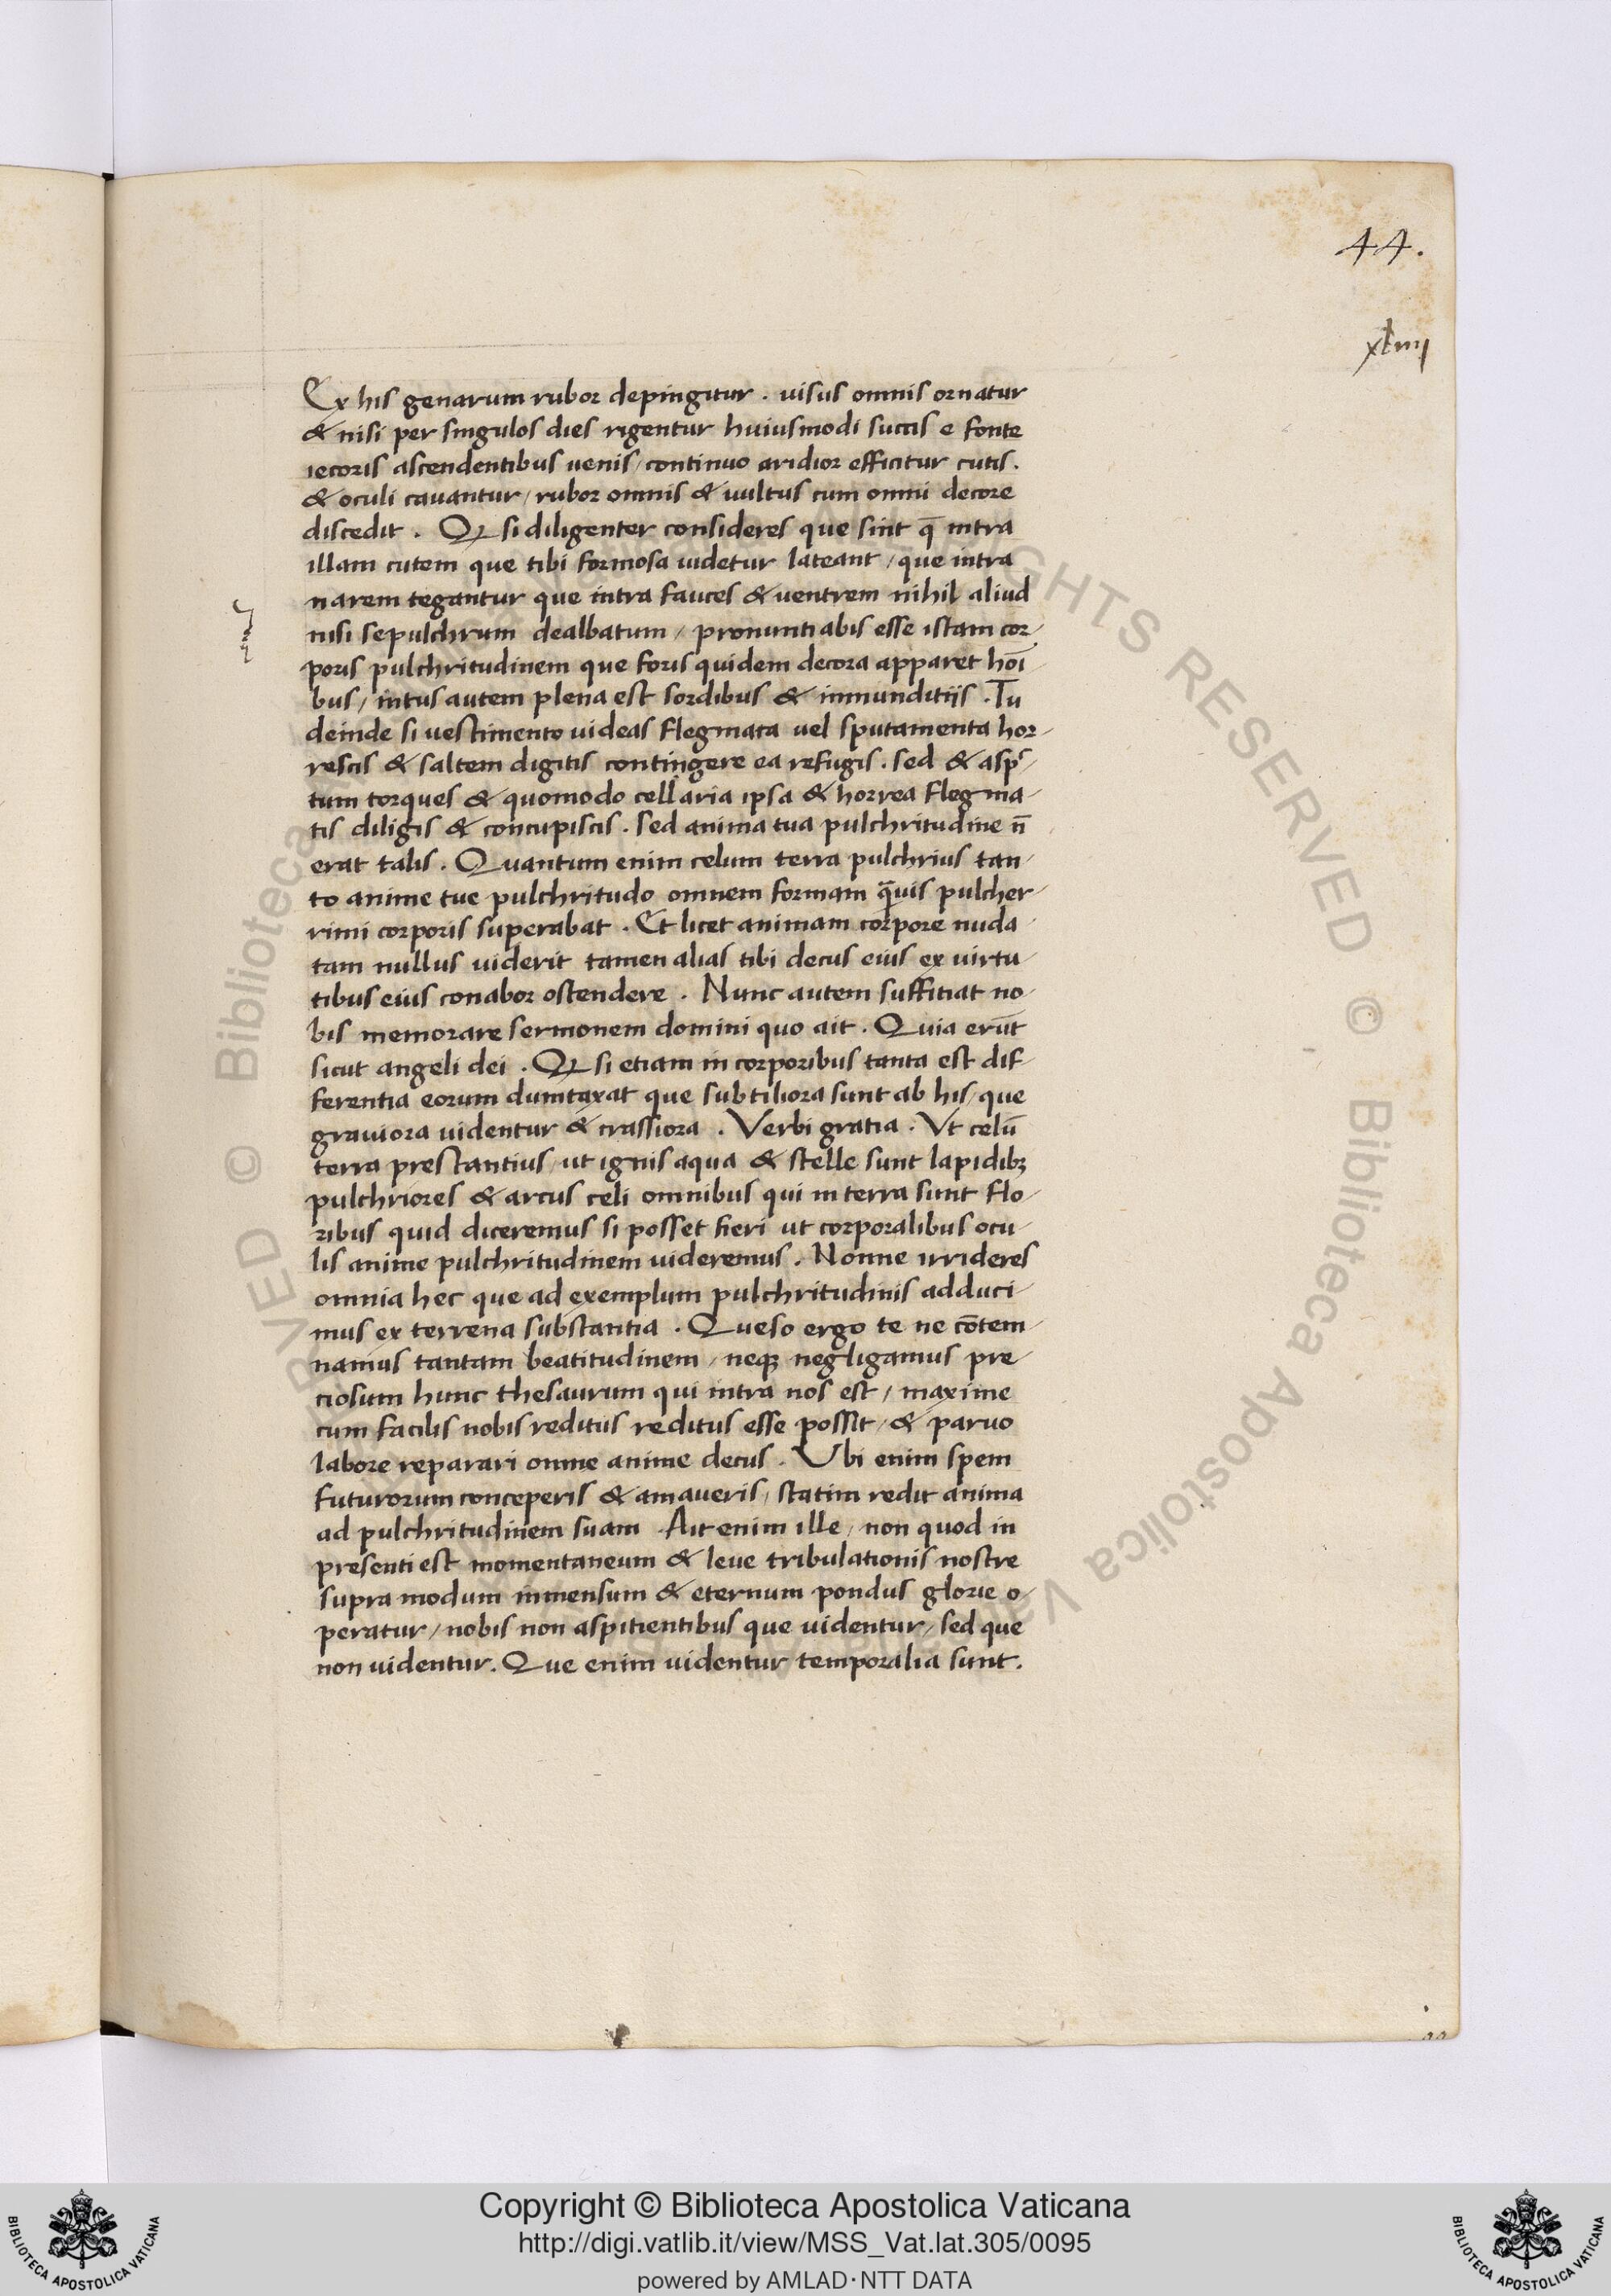 44.
xliiij
Ex his genarum rubor depingitur . uisus omnis ornatur
& nisi per singulos dies rigentur huiusmodi succis e fonte
iecoris ascendentibus uenis / continuo aridior efficitur cutis .
& oculi cauantur / rubor omnis & uultus cum omni decore
discedit . Q si diligenter consideres que sint q̄ intra
illam cutem que tibi formosa uidetur lateant / que intra
narem tegantur que intra fauces & uentrem nihil aliud
nisi sepulchrum dealbatum / pronuntiabis esse istam cor-
poris pulchritudinem que foris quidem decora apparet hoī-
bus / intus autem plena est sordibus & inmunditiis . Tu
deinde si uestimento uideas flegmata uel sputamenta hor-
rescis & saltem digitis contingere ea refugis . sed & asp-
tum torques & quomodo cellaria ipsa & horrea flegma-
tis diligis & concupiscis . sed anima tua pulchritudine n̄
erat talis . Quantum enim celum terra pulchrius tan-
to anime tue pulchritudo omnem formam q̄uis pulcher-
rimi corporis superabat . Et licet animam corpore nuda-
tam nullus uiderit tamen alias tibi decus eius ex uirtu-
tibus eius conabor ostendere . Nunc autem suffitiat no-
bis memorare sermonem domini quo ait . Quia erūt
sicut angeli dei . Q si etiam in corporibus tanta est dif-
ferentia eorum dumtaxat que subtiliora sunt ab his / que
grauiora uidentur & crassiora . Verbi gratia . Vt celū
terra prestantius / ut ignis aqua & stelle sunt lapidibꝫ
pulchriores & arcus celi omnibus qui in terra sunt flo-
ribus quid diceremus si posset fieri ut corporalibus ocu-
lis anime pulchritudinem uideremus . Nonne irrideres
omnia hec que ad exemplum pulchritudinis adduci-
mus ex terrena substantia . Queso ergo te ne cōtem-
namus tantam beatitudinem / neqꝫ negligamus pre-
ciosum hunc thesaurum qui intra nos est / maxime
cum facilis nobis reditus reditus esse possit / & paruo
labore reparari omne anime decus . Vbi enim spem
futurorum conceperis & amaueris / statim redit anima
ad pulchritudinem suam . Ait enim ille / non quod in
presenti est momentaneum & leue tribulationis nostre
supra modum inmensum & eternum pondus glorie o-
peratur / nobis non aspitientibus que uidentur / sed que
non uidentur . Que enim uidentur temporalia sunt .
Copyright © Biblioteca Apostolica Vaticana
http://digi.vatlib.it/view/MSS_Vat.lat.305/0095
powered by AMLAD·NTT DATA